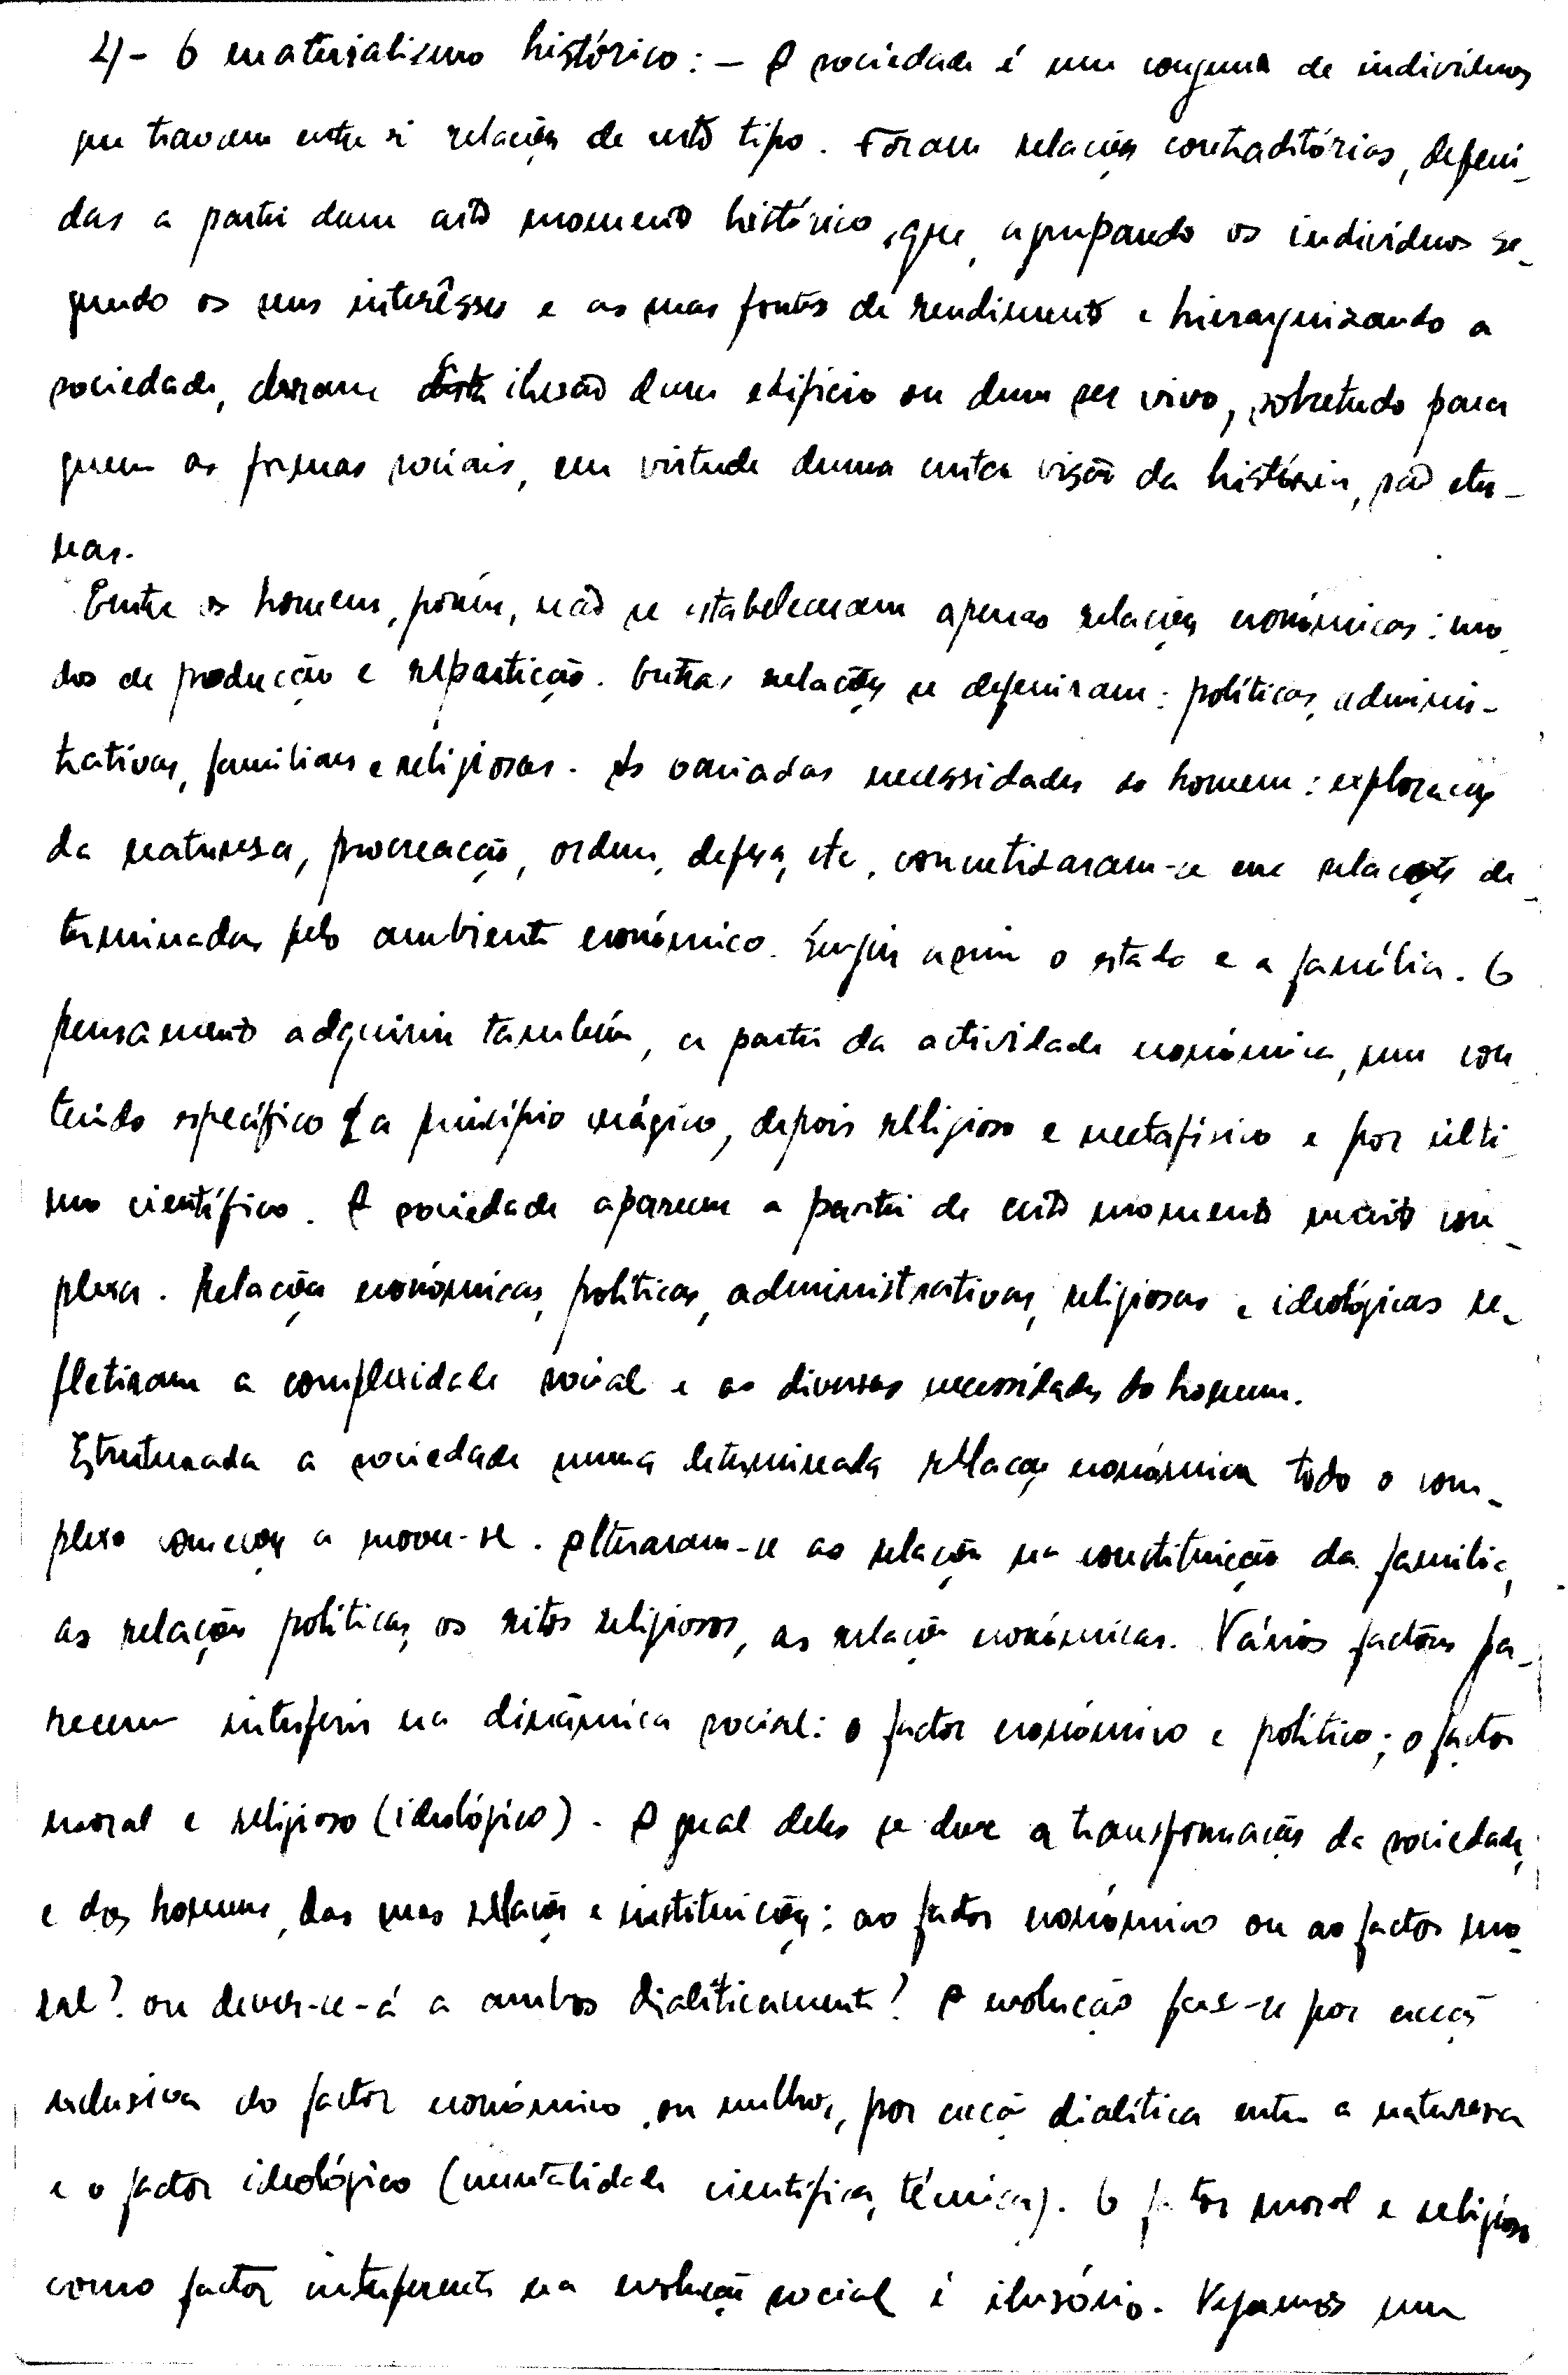 4) - O materialismo histórico: - A sociedade é um conjunto de indivíduos
que travam entre si relações de certo tipo. Foram relações contraditórias, defeni-
das a partir dum certo momento histórico, que, agrupando os indivíduos se-
gundo os seus interêsses e as suas fontes de rendimento e hierarquizando a
sociedade, deram esta ilusão dum edifício ou dum ser vivo, sobretudo para
quem as formas sociais, em virtude duma curta visão da história, são eter-
nas.
Entre os homens, porém, não se estabeleceram apenas relações económicas: mo-
dos de produção e repartição. Outras relações se defeniram: políticas, adminis-
trativas, familiares e religiosas. As variadas necessidades do homem: exploração
da natureza, procreação, ordem, defesa, etc, concretizaram-se em relações de-
terminadas pelo ambiente económico. Surgiu assim o estado e a família. O
pensamento adquiriu também, a partir da actividade económica, um con
teúdo específico a princípio mágico, depois religioso e metafísico e por últi-
mo científico. A sociedade apareceu a partir de certo momento muito com-
plexa. Relações económicas, políticas, administrativas, religiosas e ideológicas re-
fletiram a complexidade social e as diversas necessidades do homem.
Estruturada a sociedade numa determinada relação económica todo o com-
plexo começou a mover-se. Alteraram-se as relações na constituição da família,
as relações políticas, os ritos religiosos, as relações económicas. Vários factores pa-
recem interferir na dinâmica social: o factor económico e político; o factor
moral e religioso (ideológico). A qual deles se deve a transformação da sociedade,
e dos homens, das suas relações e instituições: ao factor económico ou ao factor mo-
ral? ou dever-se-á a ambos dialíticamente? A evolução faz-se por acção
exclusiva do factor económico, ou melhor, por acção dialítica entre a natureza
e o factor ideológico (mentalidade científica, técnica). O factor moral e religioso
como factor interferente na evolução social é ilusório. Vejamos um